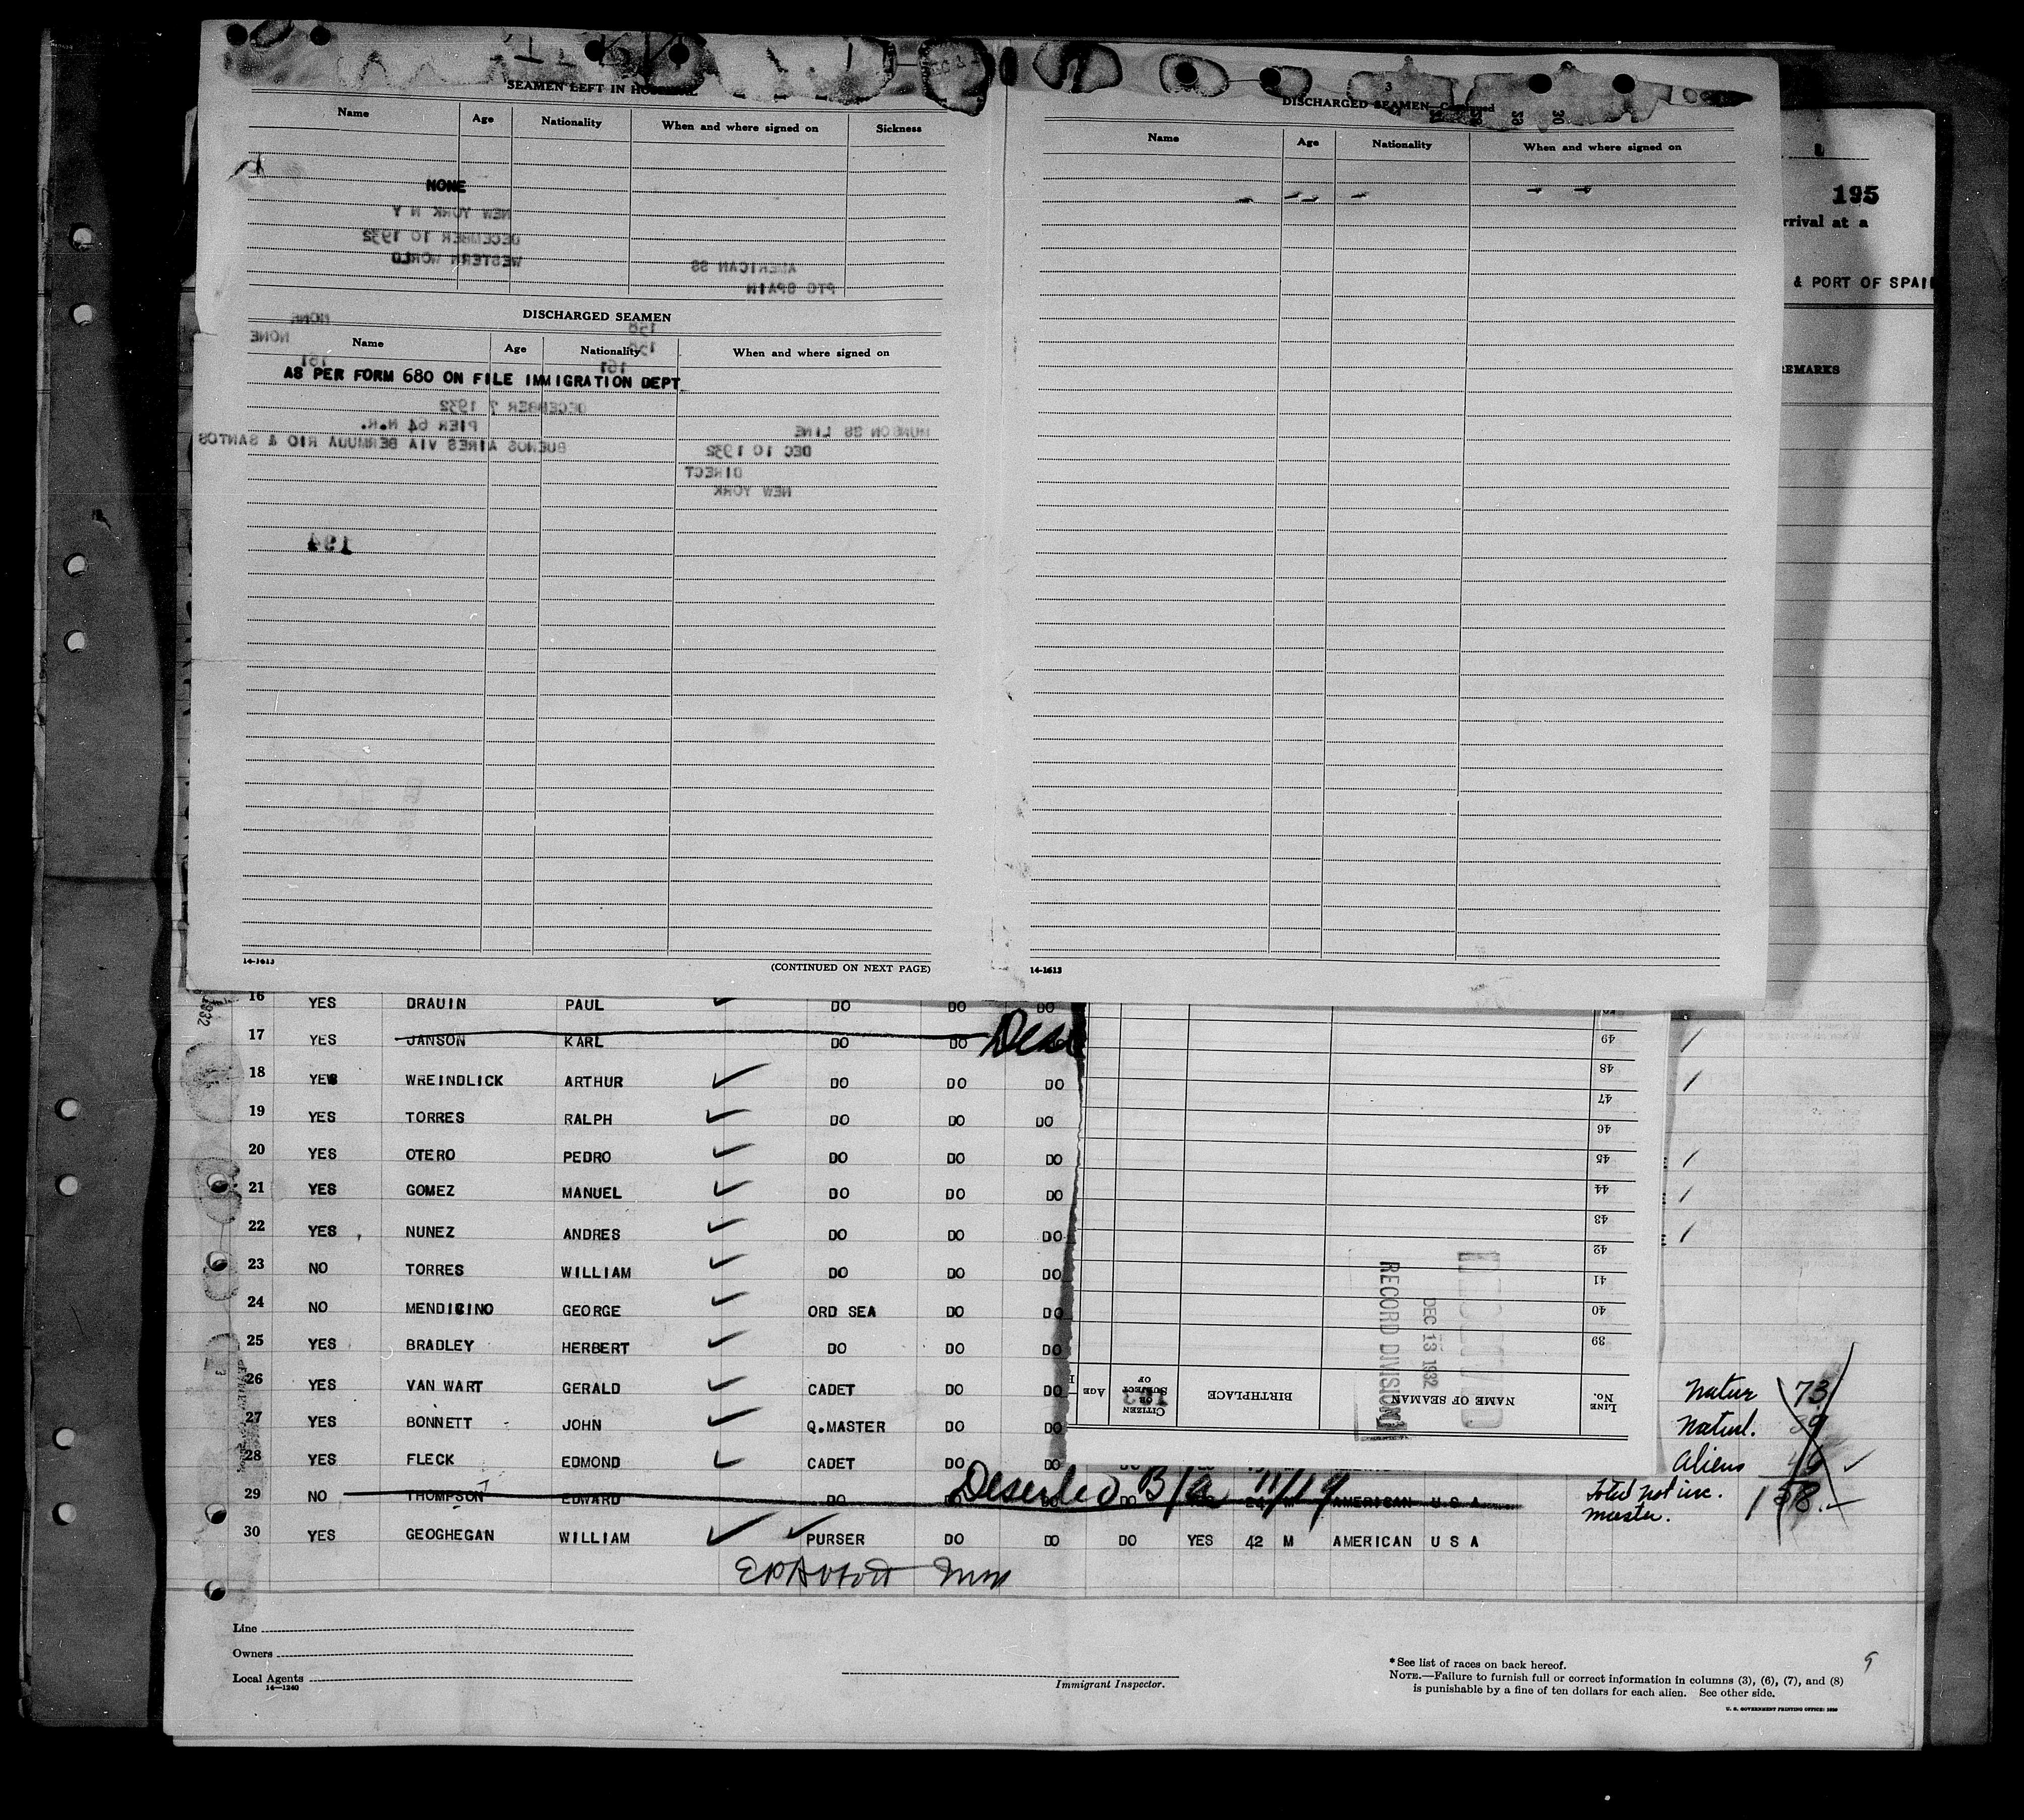 SEAMEN LEFT IN HOSPITAL
Name Age Nationality When and where signed on Sickness
NONE
NEW YORK N Y
DECEMBER 10 1932
WESTERN WORLD
AMERICAN SS
PTO SPAIN
DISCHARGED SEAMEN
NONE
158
NONE
158
Name Age Nationality When and where signed on
161
161
AS PER FORM 680 ON FILE IMMIGRATION DEPT.
DECEMBER 7 1932
PIER 64 N.R.
MUNSON SS LINE
BUENOS AIRES VIA BERMUDA RIO & SANTOS
DEC 10 1932
DIRECT
NEW YORK
194
14-1613
(CONTINUED ON NEXT PAGE)
3
DISCHARGED SEAMEN—Continued
29 30
Name Age Nationality When and where signed on
14-1613
195
rrival at a
& PORT OF SPAIN
REMARKS
16 YES DRAUIN PAUL DO DO DO
17 YES JANSON KARL DO DO Des
18 YES WREINDLICK ARTHUR DO DO DO
19 YES TORRES RALPH DO DO DO
20 YES OTERO PEDRO DO DO DO
21 YES GOMEZ MANUEL DO DO DO
22 YES NUNEZ ANDRES DO DO DO
23 NO TORRES WILLIAM DO DO DO
24 NO MENDICINO GEORGE ORD SEA DO DO
25 YES BRADLEY HERBERT DO DO DO
26 YES VAN WART GERALD CADET DO DO
27 YES BONNETT JOHN Q.MASTER DO DO
28 YES FLECK EDMOND CADET DO DO
29 NO THOMPSON EDWARD DO DO DO DO 24 M AMERICAN U S A
Deserted B/A 11/19
30 YES GEOGHEGAN WILLIAM PURSER DO DO DO YES 42 M AMERICAN U S A
49
48
47
46
45
44
43
42
41
40
39
LINE No. NAME OF SEAMAN BIRTHPLACE CITIZEN OR SUBJECT OF AGE
RECORD DIVISION
DEC 13 1932
Native 73
Natul.
Aliens
Total not inc. 158
master.
Line
Owners
Local Agents
14—1240
Immigrant Inspector.
*See list of races on back hereof.
NOTE.—Failure to furnish full or correct information in columns (3), (6), (7), and (8)
is punishable by a fine of ten dollars for each alien. See other side.
U. S. GOVERNMENT PRINTING OFFICE: 1930
9